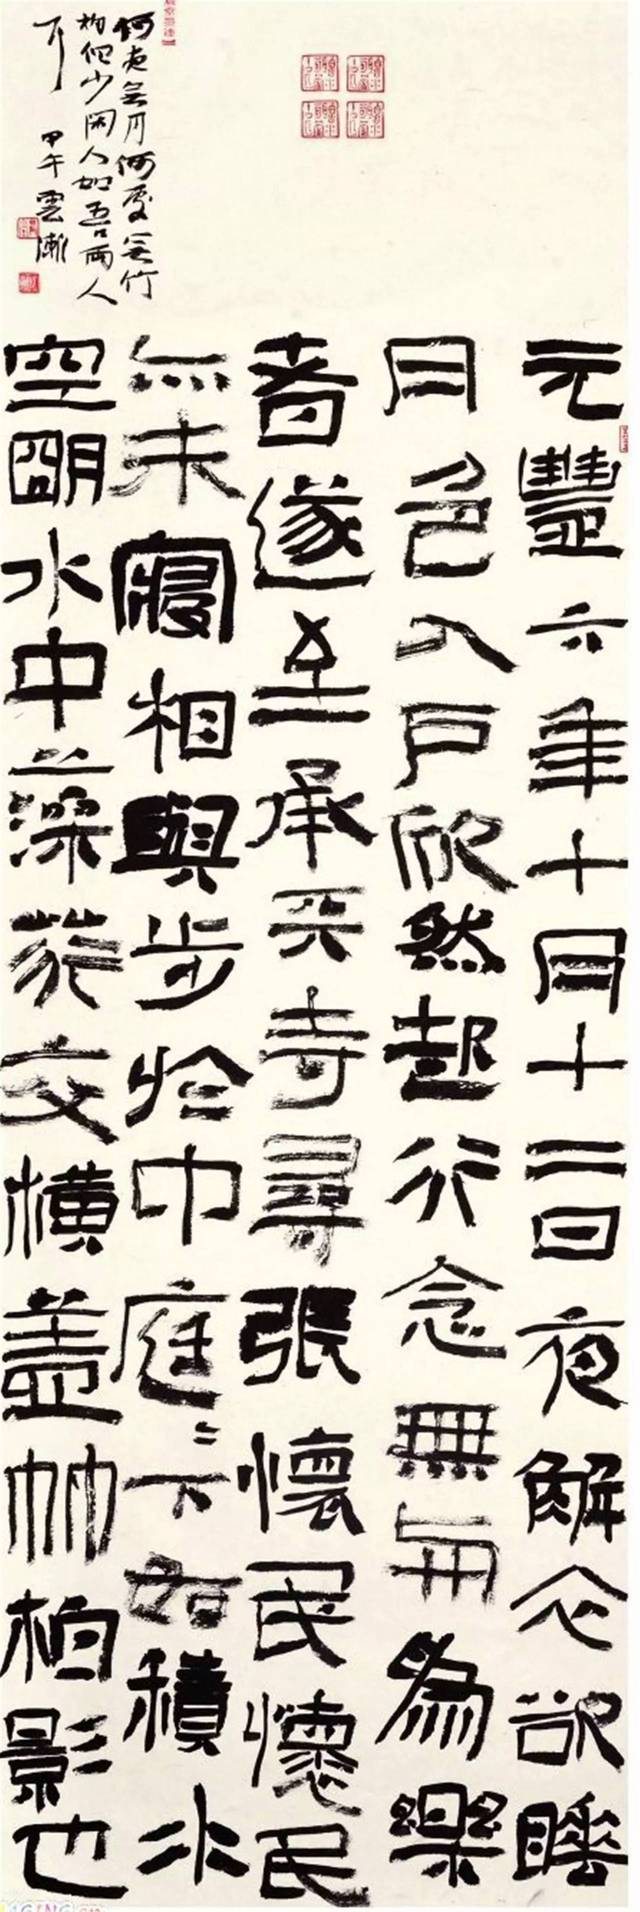 元豐六年十月十二日夜解衣欲睡
月色入戶欣然起行念無與為樂
者遂至承天寺尋張懷民懷民
亦未寢相與步於中庭〻下如積水
空朙水中藻荇交橫蓋竹柏影也
何夜无月何處无竹
柏但少閑人如吾兩人
耳 甲午雲漸